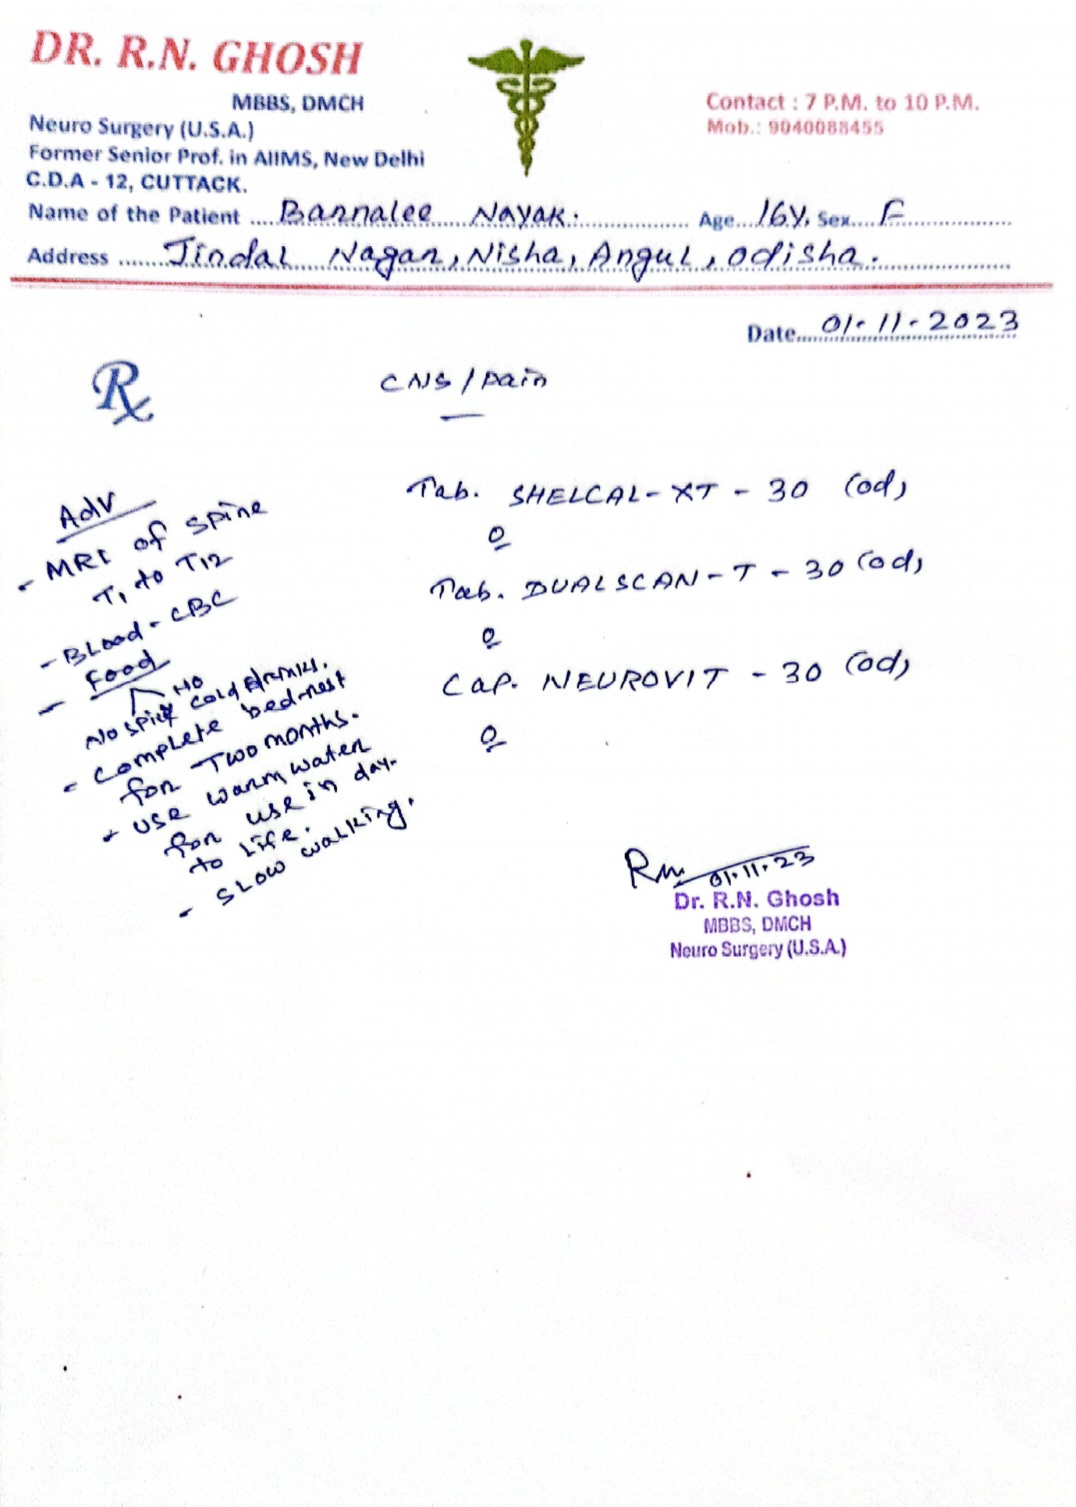 DR. R.N. GHOSH
MBBS, DMCH
Neuro Surgery (U.S.A.)
Former Senior Prof. in AIIMS, New Delhi
C.D.A - 12, CUTTACK.
Contact : 7 P.M. to 10 P.M.
Mob.: 9040088455
Name of the Patient .... Barnalee Nayak. Age... 16y, Sex.... F
Address ...... Jindal Nagar, Nisha, Angul, Odisha.
Date.... 01-11-2023
Rx
CNS / Pain
Adv
- MRI of spine
T1 to T12
- Blood - CBC
- Food
No spicy NO cold drinks.
- complete bed-rest
for Two months.
- use warm water
for use in day-
to Life.
- SLOW walking.
Tab. SHELCAL-XT - 30 (od)
Tab. DUALSCAN-T - 30 (od)
Cap. NEUROVIT - 30 (od)
01.11.23
Dr. R.N. Ghosh
MBBS, DMCH
Neuro Surgery (U.S.A.)